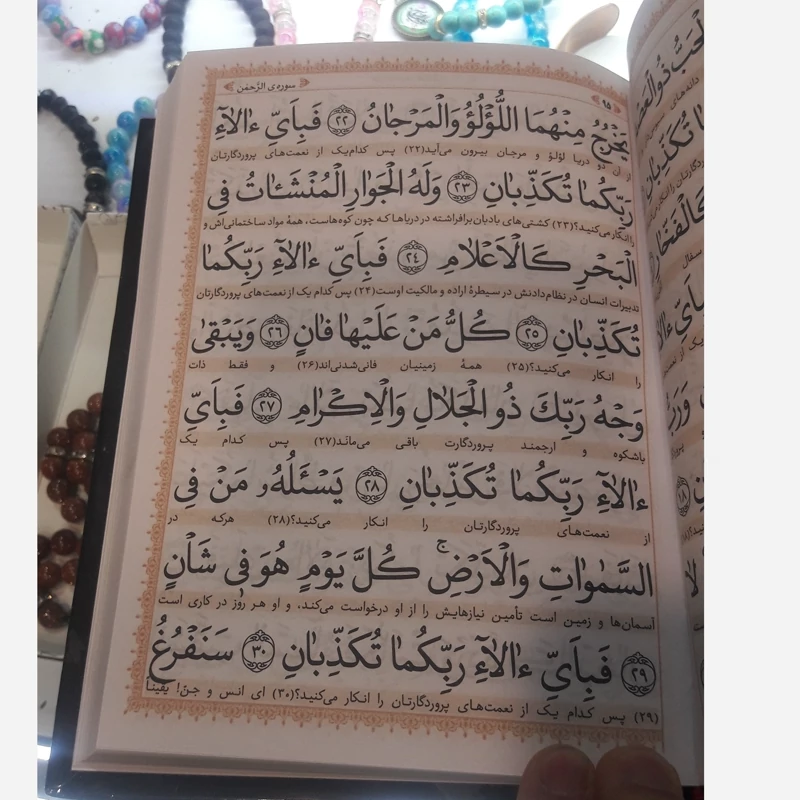 سوره‌ی الرَّحمٰن
۱۵
يَخْرُجُ مِنْهُمَا اللُّؤْلُؤُ وَالْمَرْجَانُ ﴿۲۲﴾ فَبِاَيِّ ءٰالٰٓاءِ
از آن دو دریا لؤلؤ و مرجان بیرون می‌آید(۲۲) پس کدام‌یک از نعمت‌های پروردگارتان
رَبِّكُمٰا تُكَذِّبٰانِ ﴿۲۳﴾ وَلَهُ الْجَوٰارِ الْمُنْشَـَٔاتُ فِى
را انکار می‌کنید؟(۲۳) کشتی‌های بادبان برافراشته در دریاها که چون کوه‌هاست، همهٔ مواد ساختمانی‌اش و
الْبَحْرِ كَالْاَعْلَامِ ﴿۲۴﴾ فَبِاَيِّ ءٰالٰٓاءِ رَبِّكُمٰا
تدبیرات انسان در نظام دادنش در سیطرهٔ اراده و مالکیت اوست(۲۴) پس کدام یک از نعمت‌های پروردگارتان
تُكَذِّبٰانِ ﴿۲۵﴾ كُلُّ مَنْ عَلَيْهٰا فٰانٍ ﴿۲۶﴾ وَيَبْقٰى
را انکار می‌کنید؟(۲۵) همهٔ زمینیان فانی‌شدنی‌اند(۲۶) و فقط ذات
وَجْهُ رَبِّكَ ذُو الْجَلَالِ وَالْاِكْرٰامِ ﴿۲۷﴾ فَبِاَيِّ
باشکوه و ارجمند پروردگارت باقی می‌ماند(۲۷) پس کدام یک
ءٰالٰٓاءِ رَبِّكُمٰا تُكَذِّبٰانِ ﴿۲۸﴾ يَسْـَٔلُهُۥ مَنْ فِى
از نعمت‌های پروردگارتان را انکار می‌کنید؟(۲۸) هرکه در
السَّمٰوٰاتِ وَالْاَرْضِ ۚ كُلَّ يَوْمٍ هُوَ فِى شَاْنٍ
آسمان‌ها و زمین است تأمین نیازهایش را از او درخواست می‌کند، و او هر روز در کاری است
﴿۲۹﴾ فَبِاَيِّ ءٰالٰٓاءِ رَبِّكُمٰا تُكَذِّبٰانِ ﴿۳۰﴾ سَنَفْرُغُ
(۲۹) پس کدام یک از نعمت‌های پروردگارتان را انکار می‌کنید؟(۳۰) ای انس و جن! یقیناً